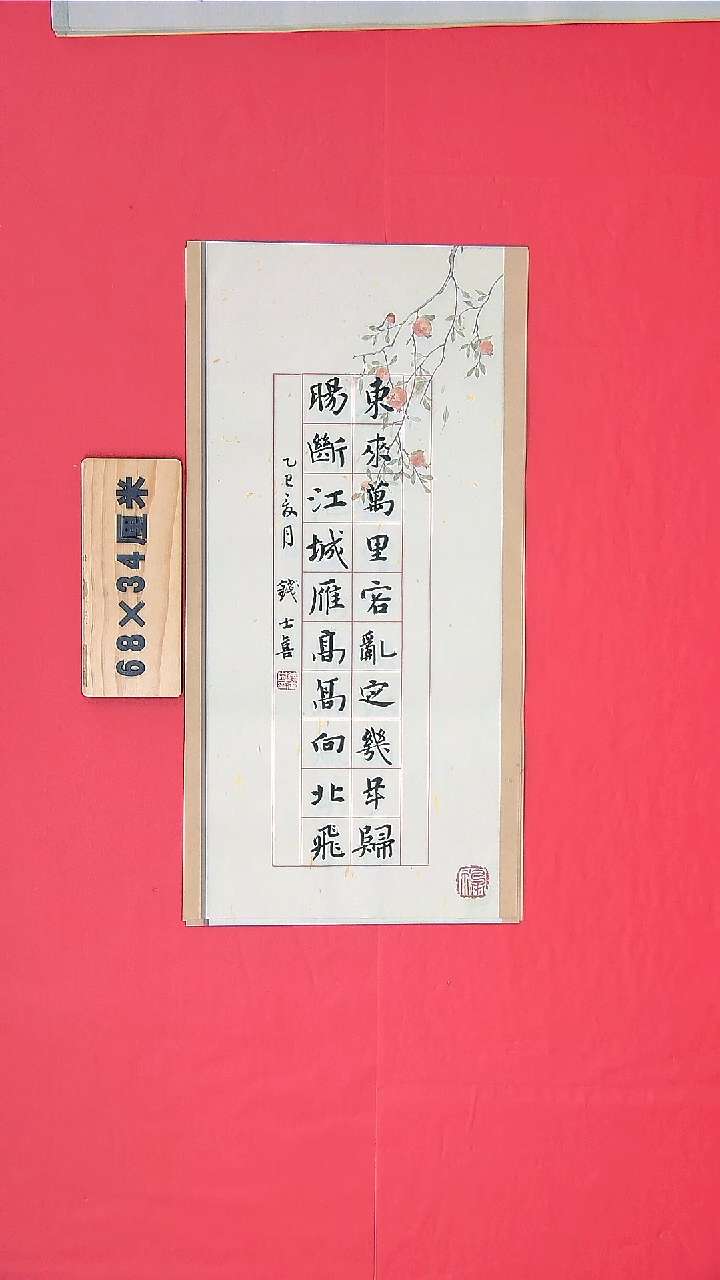 東來萬里客亂定幾年歸
腸斷江城雁高高向北飛
乙巳夏月 錢士喜
68×34厘米